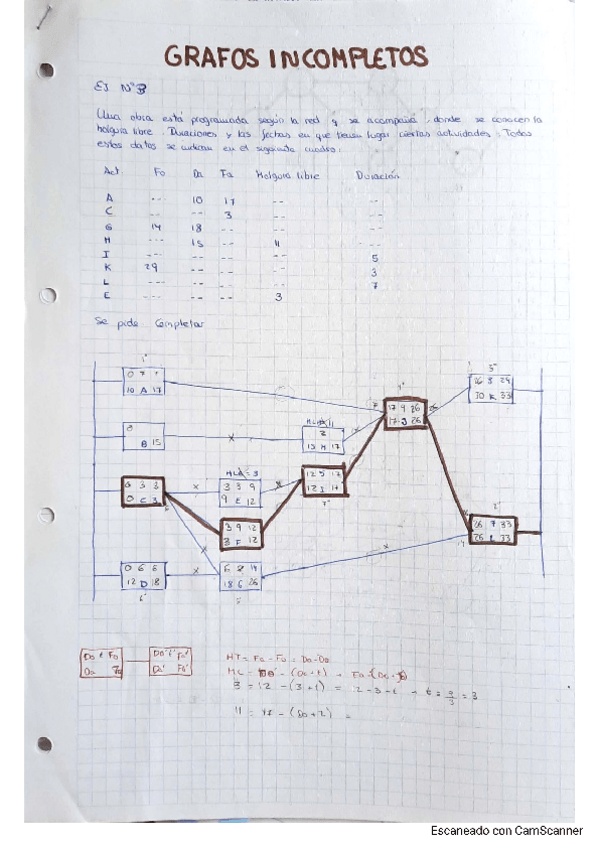 GRAFOS INCOMPLETOS
EJ Nº3
Una obra esta programada según la red q se acompaña, donde se conocen la
holgura libre. Duraciones y las fechas en que tienen lugar ciertas actividades. Todos
estos datos se indican en el siguiente cuadro:
Act. Fo Da Fa Holgura libre Duración
A --- 10 17 -- --
C --- -- 3 -- --
G 14 18 -- -- --
H --- 15 -- 11 ---
I --- -- -- -- 5
K 29 -- -- -- 3
L --- -- -- -- 7
E --- -- -- 3
Se pide Completar
0 7 7
10 A 17
B 15
HLH=11
2
15 H 17
17 9 26
17 J 26
26 3 29
30 K 33
0 3 3
0 C 3
HLE=3
3 3 9
9 E 12
12 5 17
12 I 17
3 9 12
3 F 12
26 7 33
26 L 33
0 6 6
12 D 18
6 8 14
18 G 26
Do t Fo
Da Fa
Do' t' Fo'
Da' Fa'
HT = Fa - Fo = Da - Do
3 = 12 - (3 + t) = 12 - 3 - t
11 = 17 - (Do + 2) =
Escaneado con CamScanner